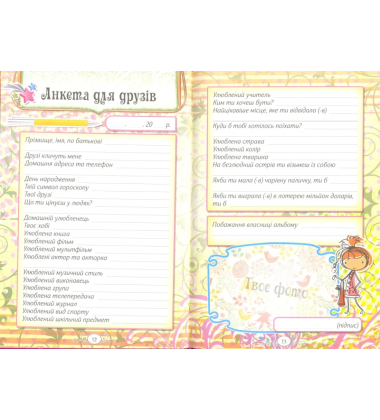 Анкета для друзів
20 р.
Прізвище, імя, по батькові
Друзі кличуть мене
Домашня адреса та телефон
День народження
Твій символ гороскопу
Твої друзі
Що ти цінуєш у людях?
Домашній улюбленець
Твоє хобі
Улюблена книга
Улюблений фільм
Улюблений мультфільм
Улюблені актор та акторка
Улюблений музичний стиль
Улюблена група
Улюблена телепередача
Улюблений журнал
Улюблений вид спорту
Улюблений шкільний предмет
12
Улюблений учитель
Ким ти хочеш бути?
Найцікавіше місце, яке ти відвідала (-в)
Куди б тобі хотілось поїхати?
Улюблена страва
Улюблений колір
Улюблена тварина
На безлюдний острів ти візьмеш із собою
Якби ти мала (-в) чарівну паличку, ти б
Якби ти виграла (-в) в лотерею мільйон доларів,
ти б
Побажання власниці альбому
Твоє фото
(підпис)
13